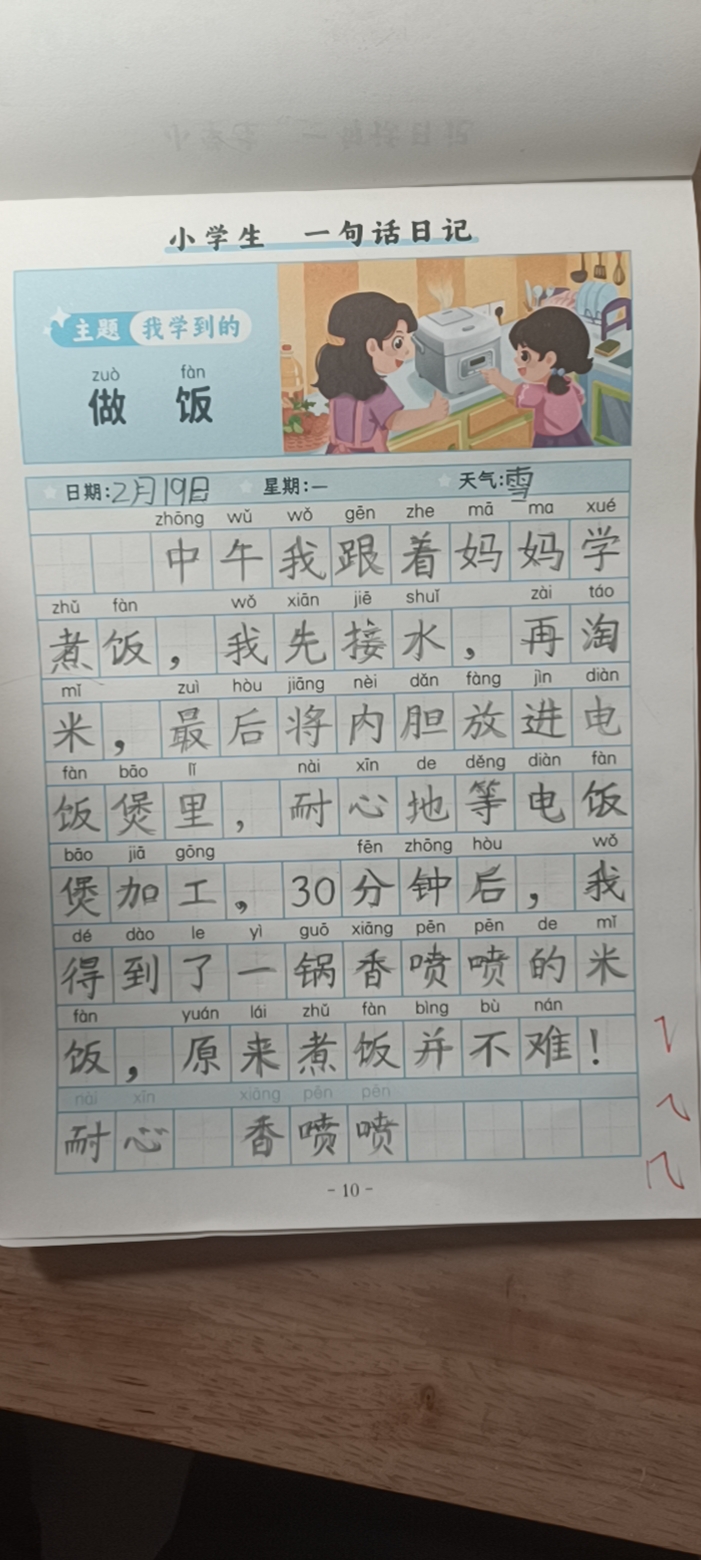 小学生 一句话日记
主题 我学到的
zuò fàn
做饭
日期:2月19日 星期:一 天气:雪
zhōng wǔ wǒ gēn zhe mā ma xué
中午我跟着妈妈学
zhǔ fàn wǒ xiān jiē shuǐ zài táo
煮饭，我先接水，再淘
mǐ zuì hòu jiāng nèi dǎn fàng jìn diàn
米，最后将内胆放进电
fàn bāo lǐ nài xīn de děng diàn fàn
饭煲里，耐心地等电饭
bāo jiā gōng fēn zhōng hòu wǒ
煲加工，30分钟后，我
dé dào le yì guō xiāng pēn pēn de mǐ
得到了一锅香喷喷的米
fàn yuán lái zhǔ fàn bìng bù nán
饭，原来煮饭并不难！
nài xīn xiāng pēn pēn
耐心 香喷喷
- 10 -